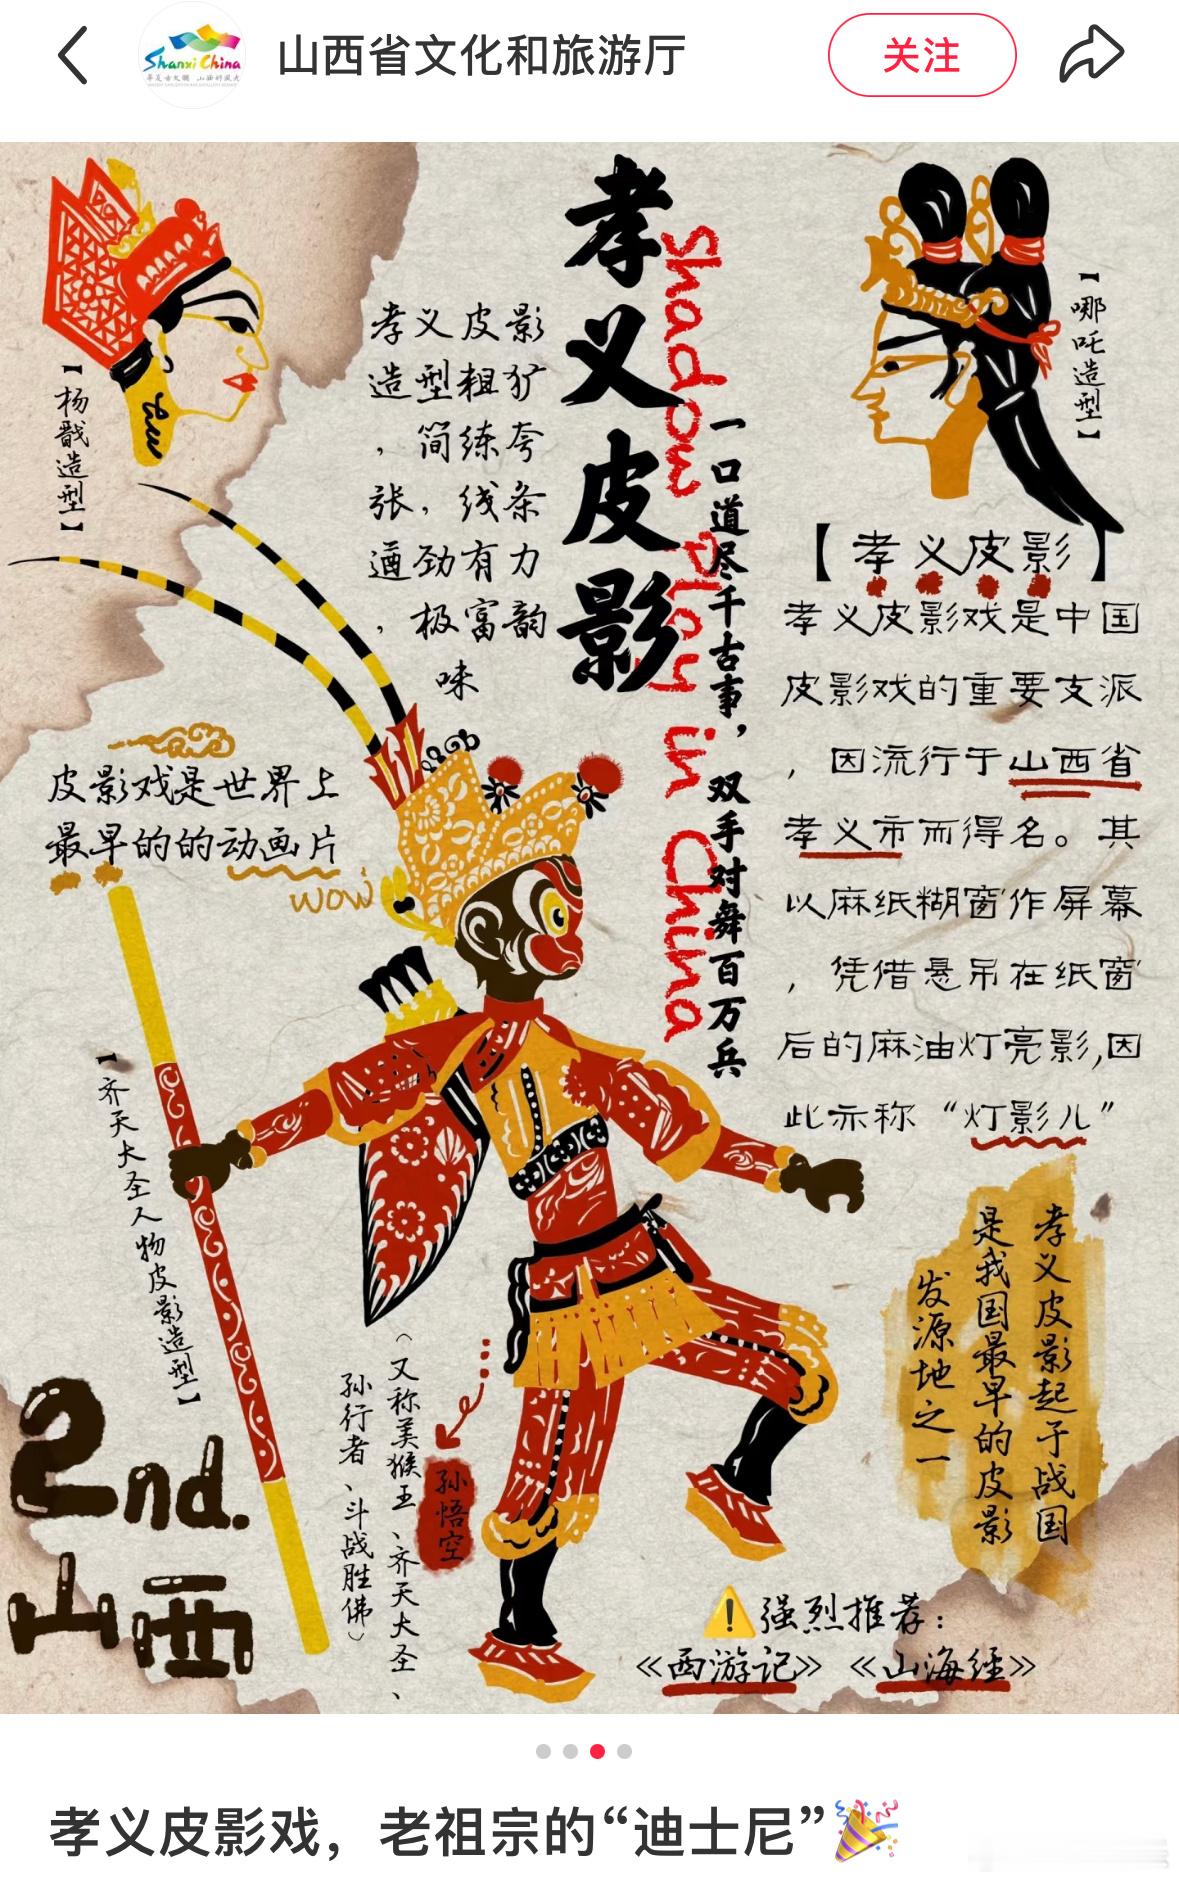 Shanxi China
山西省文化和旅游厅
关注
孝义皮影
Shadow Play in China
一口道尽千古事，双手对舞百万兵
【杨戬造型】
孝义皮影
造型粗犷
，简练夸
张，线条
遒劲有力
，极富韵
味
【哪吒造型】
【孝义皮影】
孝义皮影戏是中国
皮影戏的重要支派
，因流行于山西省
孝义市而得名。其
以麻纸糊窗作屏幕
，凭借悬吊在纸窗
后的麻油灯亮影,因
此亦称“灯影儿”
皮影戏是世界上
最早的的动画片
wow
【齐天大圣人物皮影造型】
孙悟空
（又称美猴王、齐天大圣、
孙行者、斗战胜佛）
孝义皮影起于战国
是我国最早的皮影
发源地之一
2nd.
山西
⚠️强烈推荐：
《西游记》《山海经》
孝义皮影戏，老祖宗的“迪士尼”🎉